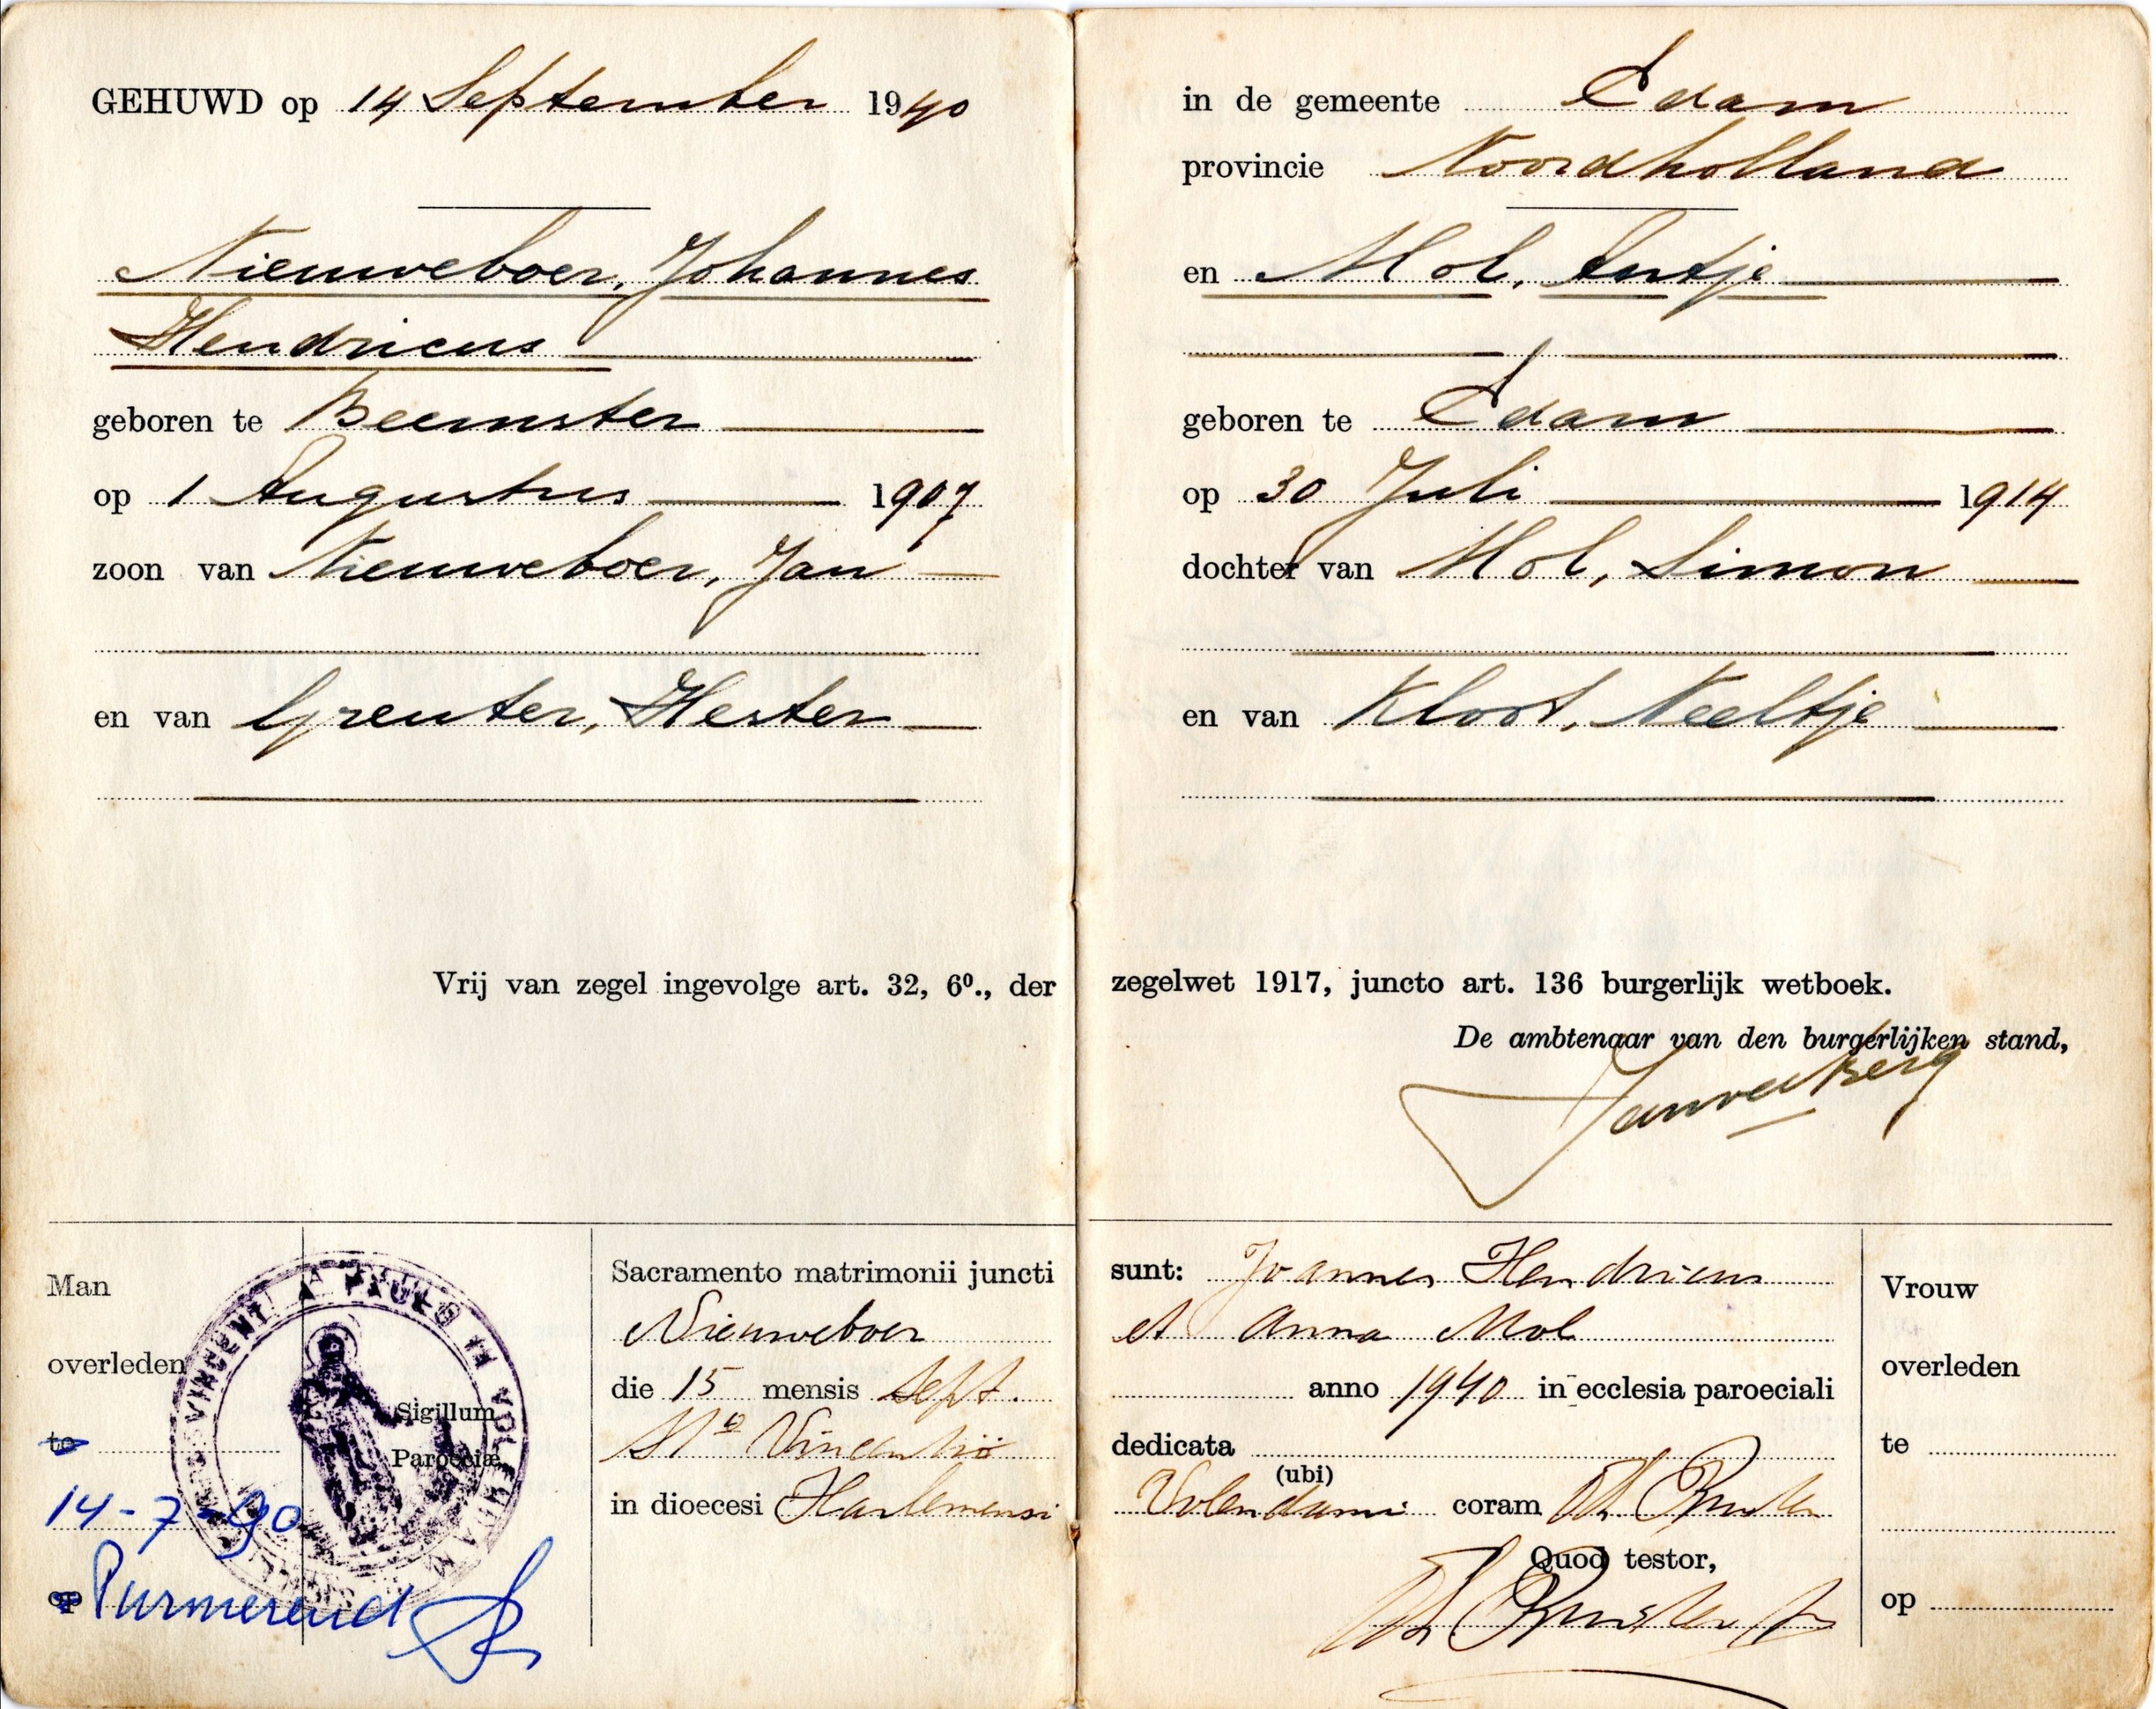 GEHUWD op 14 September 1940
Nieuweboer, Johannes
Hendricus
geboren te Beemster
op 1 Augustus 1907
zoon van Nieuweboer, Jan
en van Greuter, Hester
Vrij van zegel ingevolge art. 32, 6º., der
Man
overleden
te
14-7-90
op Purmerend
VINCENTII A PAULO IN VOLENDAM
Sigillum
Paroeciæ
Sacramento matrimonii juncti
Nieuweboer
die 15 mensis Sept.
Sto Vincentio
in dioecesi Harlemensi
in de gemeente Edam
provincie Noordholland
en Mol, Antje
geboren te Edam
op 30 Juli 1914
dochter van Mol, Simon
en van Kloot, Neeltje
zegelwet 1917, juncto art. 136 burgerlijk wetboek.
De ambtenaar van den burgerlijken stand,
sunt: Joannes Hendricus
et Anna Mol
anno 1940 in ecclesia paroeciali
dedicata
(ubi)
Volendam coram
Quod testor,
Vrouw
overleden
te
op